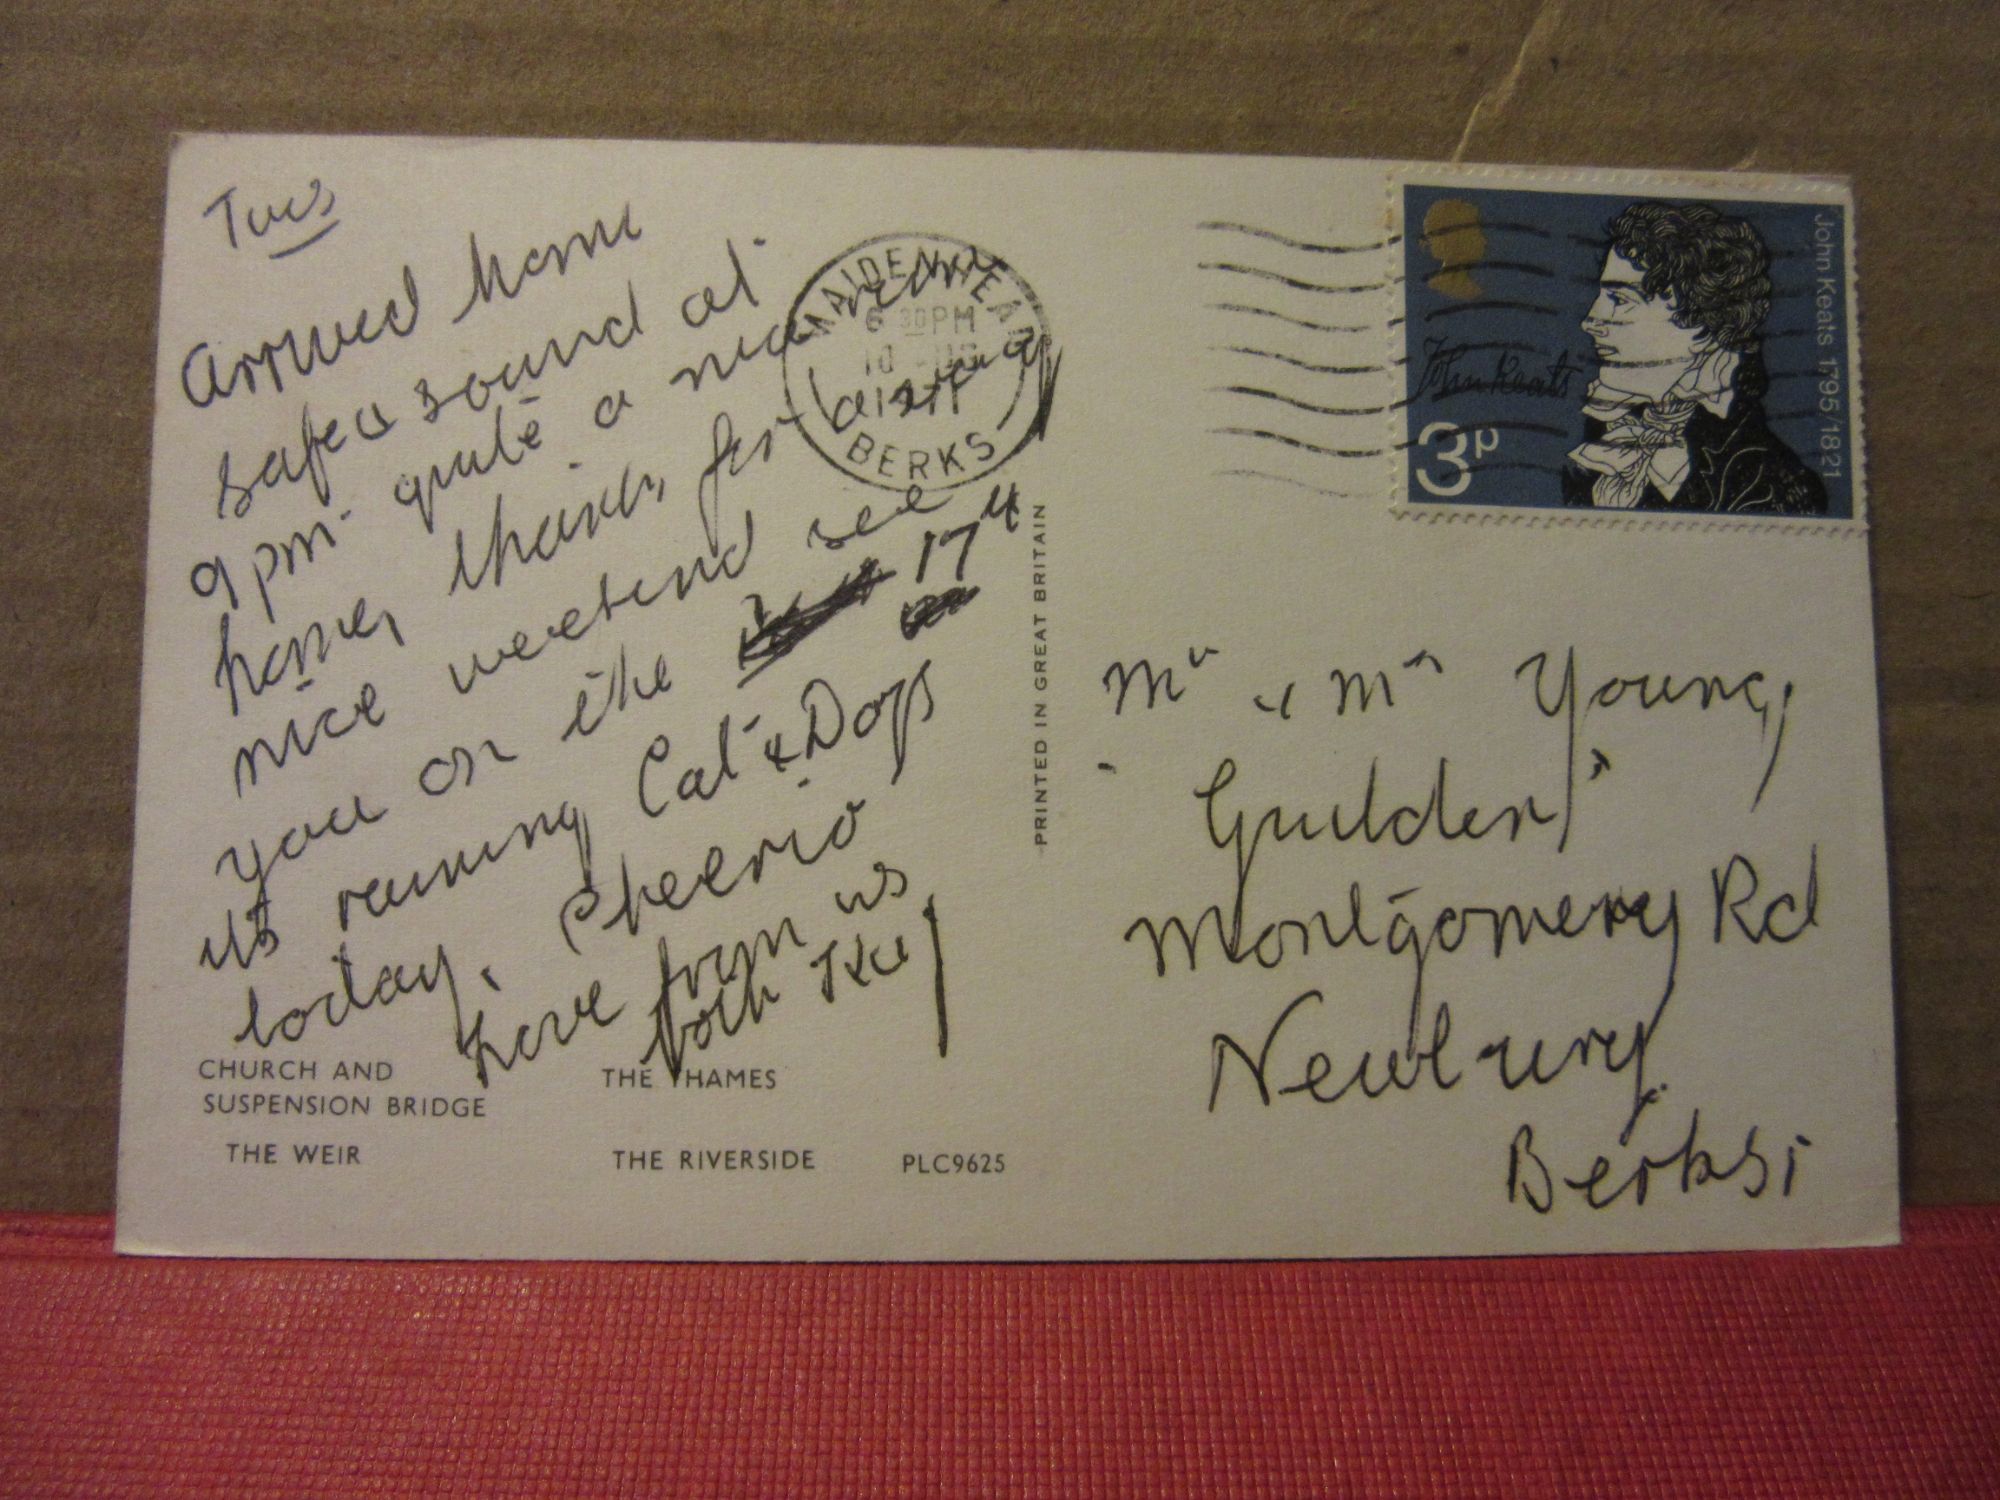 Tues
Arrived home
safe & sound at
9 pm. quite a nice run
home, thanks for a
nice weekend see
you on the 17th
its raining Cats & Dogs
today. Cheerio
love from us
both
CHURCH AND
SUSPENSION BRIDGE
THE THAMES
THE WEIR
THE RIVERSIDE
PLC9625
PRINTED IN GREAT BRITAIN
MAIDENHEAD
6 30PM
10
1971
BERKS
John Keats 1795/1821
John Keats
3p
Mr & Mrs Young,
"Guilden"
Montgomery Rd
Newbury.
Berks